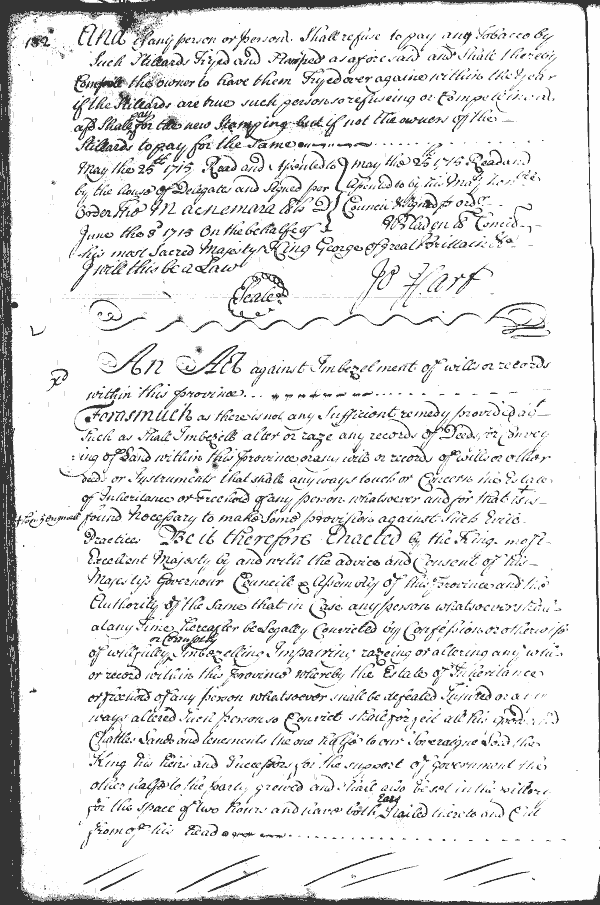 182
And if any person or persons Shall refuse to pay any Tobacco by
Such Stillards Tryed and Stamped as aforesaid and Shall thereby
Compell the owner to have them Tryed over againe within the Year
if the Stillards are true such person so refuseing or Compelling as
afsd Shall pay for the new Stamping but if not the owners of the
Stillards to pay for the Same
May the 25th 1715 Read and Assented to
by the house of Delegates and Signed per
Order Tho Macnemara
May the 25th 1715 Read and
Assented to by his Majtys honble
Council & Signd p order
W Bladen
June the 3d 1715 On the behalfe of
his most Sacred Majesty King George of great Brittain &c
I will this be a Law
Seale
Jo Hart
An Act against Imbezelment of wills or records
within this province
Forasmuch as there is not any Sufficient remedy provided agt
Such as Shall Imbezelle alter or raze any records of Deeds, or Convey
ing of Land within this Province or any wills or records of wills or other
deeds or Instruments that shall any ways touch or Concern the Estate
of Inheritance or Freehold of any person whatsoever and for that it is
found Necessary to make Some provision against Such Evile
Practices Be it therefore Enacted by the Kings most
Excellent Majesty by and with the advice and Consent of his
Majestys Governour Councill & Assembly of this Province and the
Authority of the Same that in Case any person whatsoever shall
at any time hereafter be Legally Convicted by Confession or otherwise
of willfully Imbezelling Impairing razeing or altering any will
or record within this Province whereby the Estate of Inheritance
or freehold of any person whatsoever shall be defeated Injured or any
ways altered Such person so Convict shall forfeit all his goods and
Chattles Lands and tenements the one halfe to our Soveraigne Lord the
King his heirs and Successors for the support of Government the
other halfe to the party grieved and Shall also be set in the pillory
for the space of two hours and have both Ears Nailed thereto and Cut
from of his head